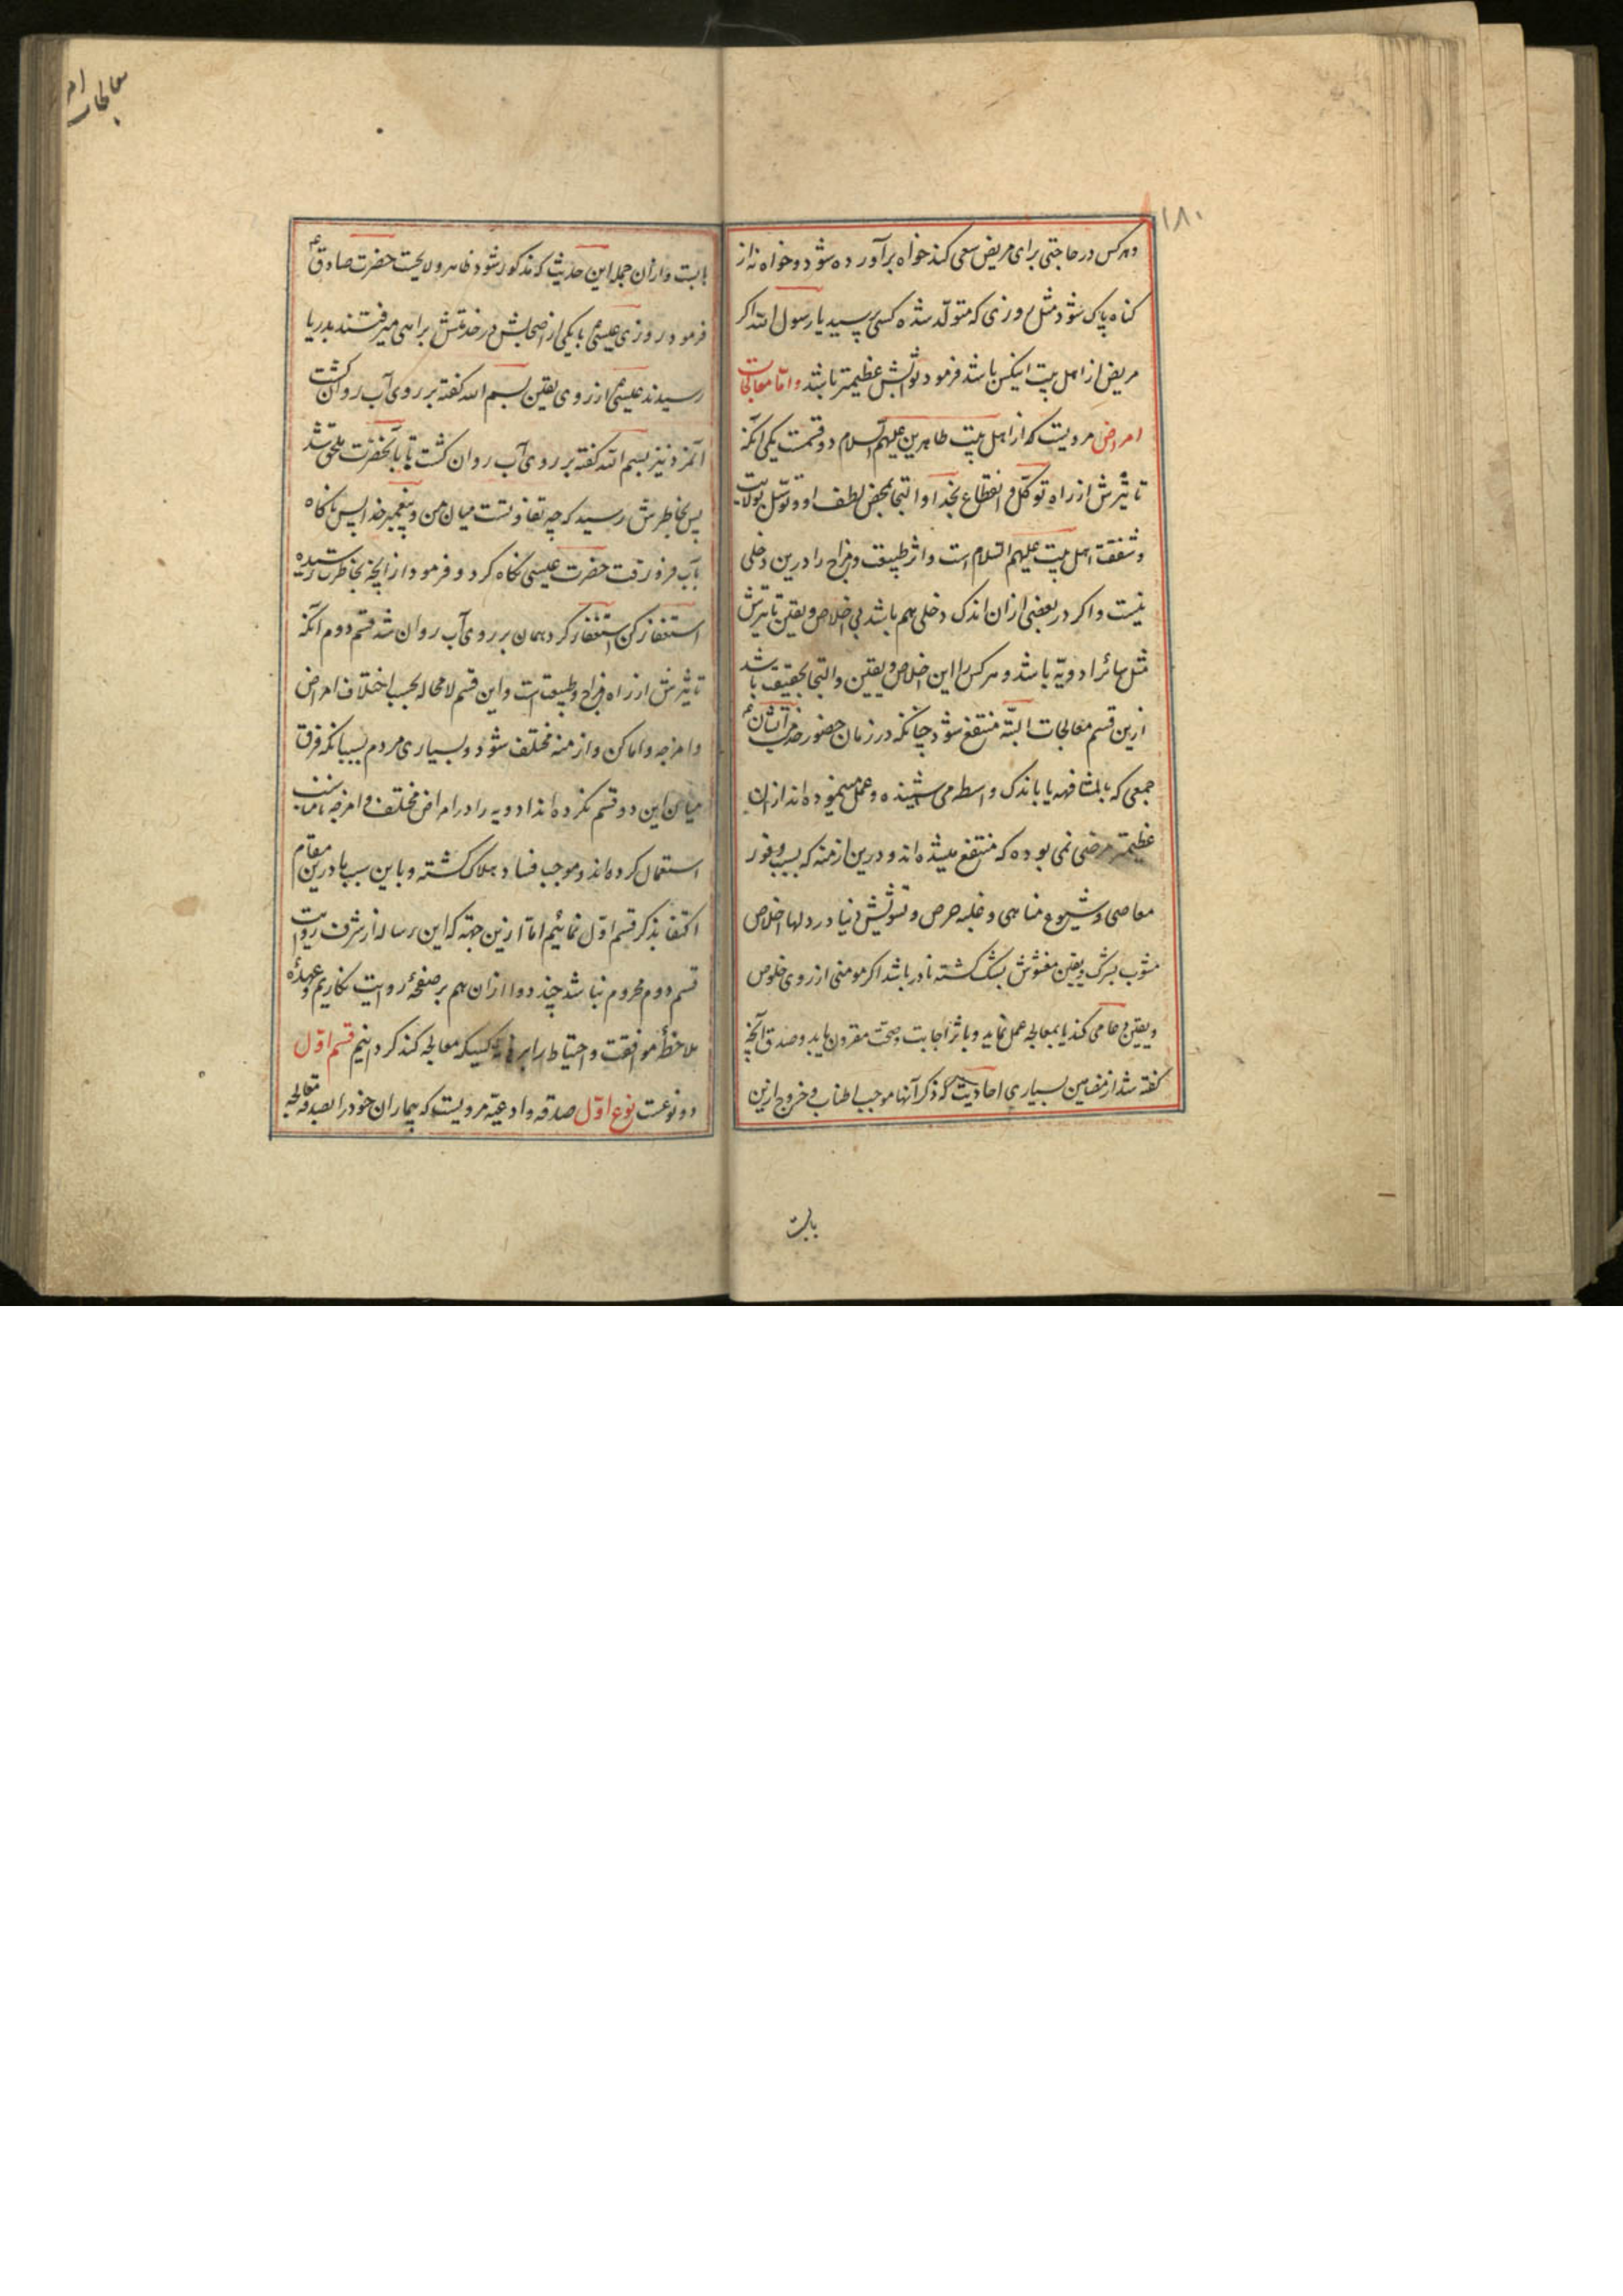 ۱۸۰
وهرکس در حاجتی برای مریض سعی کند خواه برآورده شود و خواه نه از
کناه پاک شود مثل روزی که متولد شده کسی پرسید یا رسول الله اکر
مریض از اهل بیت اینکس باشد فرمود ثوابش عظیمتر باشد واما معالجات
امراض مرویست که از اهل بیت طاهرین علیهم السلام دو قسمت یکی آنکه
تاثیرش از راه توکل و انقطاع بخدا و التجا بمحض لطف او و توسل بولایت
و شفقت اهل بیت علیهم السلام است و اثر طبیعت و مزاج را درین دخلی
نیست و اکر در بعضی از آن اندک دخلی هم باشد بی اخلاص و یقین تاثیرش
مثل سائر ادویه باشد و هر کس را این اخلاص و یقین و التجا بحقیقت باشد
ازین قسم معالجات البته منتفع شود چنانکه در زمان حضور حضرت ایشان ع
جمعی که بالمشافهه یا باندک واسطه می شنیده و عمل مینموده اند از آن
عظیمتر مرضی نمی بوده که منتفع میشده اند و درین ازمنه که بسبب وفور
معاصی و شیوع مناهی و غلبه حرص و تشویش دنیا در دلها اخلاص
مشوب بشرک و یقین مغشوش بشک کشته نادر باشد اکر مومنی از روی خلوص
و یقین دعا می کند یا بمعالجه عمل نماید و باثر اجابت و صحت مقرون یابد و صدق آنچه
کفته شد از مضامین بسیاری احادیث که ذکر آنها موجب اطناب و خروج ازین
بابست
معالجات امر
بابست و از آن جمله این حدیث که مذکور شود ظاهر و لایحست حضرت صادق ع
فرمود روزی عیسی ع با یکی از اصحابش در خدمتش براهی میرفتند بدریا
رسیدند عیسی ع از روی یقین بسم الله کفته بر روی آب روان کشت
آنمرد نیز بسم الله کفته بر روی آب روان کشت تا بآنحضرت ملحق شد
پس بخاطرش رسید که چه تفاوتست میان من و پیغمبر خدا پس ناکاه
بآب فرو رفت حضرت عیسی نکاه کرد و فرمود از آنچه بخاطرت رسیده
استغفار کن استغفار کرد همان بر روی آب روان شد قسم دوم آنکه
تاثیرش از راه مزاج و طبیعت است و این قسم لامحاله بحسب اختلاف امراض
و امزجه و اماکن و ازمنه مختلف شود و بسیاری مردم بسبب آنکه فرق
میان این دو قسم نکرده اند ادویه را در امراض مختلف و امزجه نامناسب
استعمال کرده اند و موجب فساد و هلاک کشته و باین سبب باید درین مقام
اکتفا بذکر قسم اول نمائیم اما ازین جهة که این رساله از شرف روایت
قسم دوم محروم نباشد چند دوا از آن هم بر صفحهٔ روایت نکاریم و عهدهٔ
ملاحظهٔ موافقت و احتیاط را بر کسیکه معالجه کند کردانیم قسم اول
دو نوعست نوع اول صدقه و ادعیه مرویست که بیماران خود را بصدقه معالجه